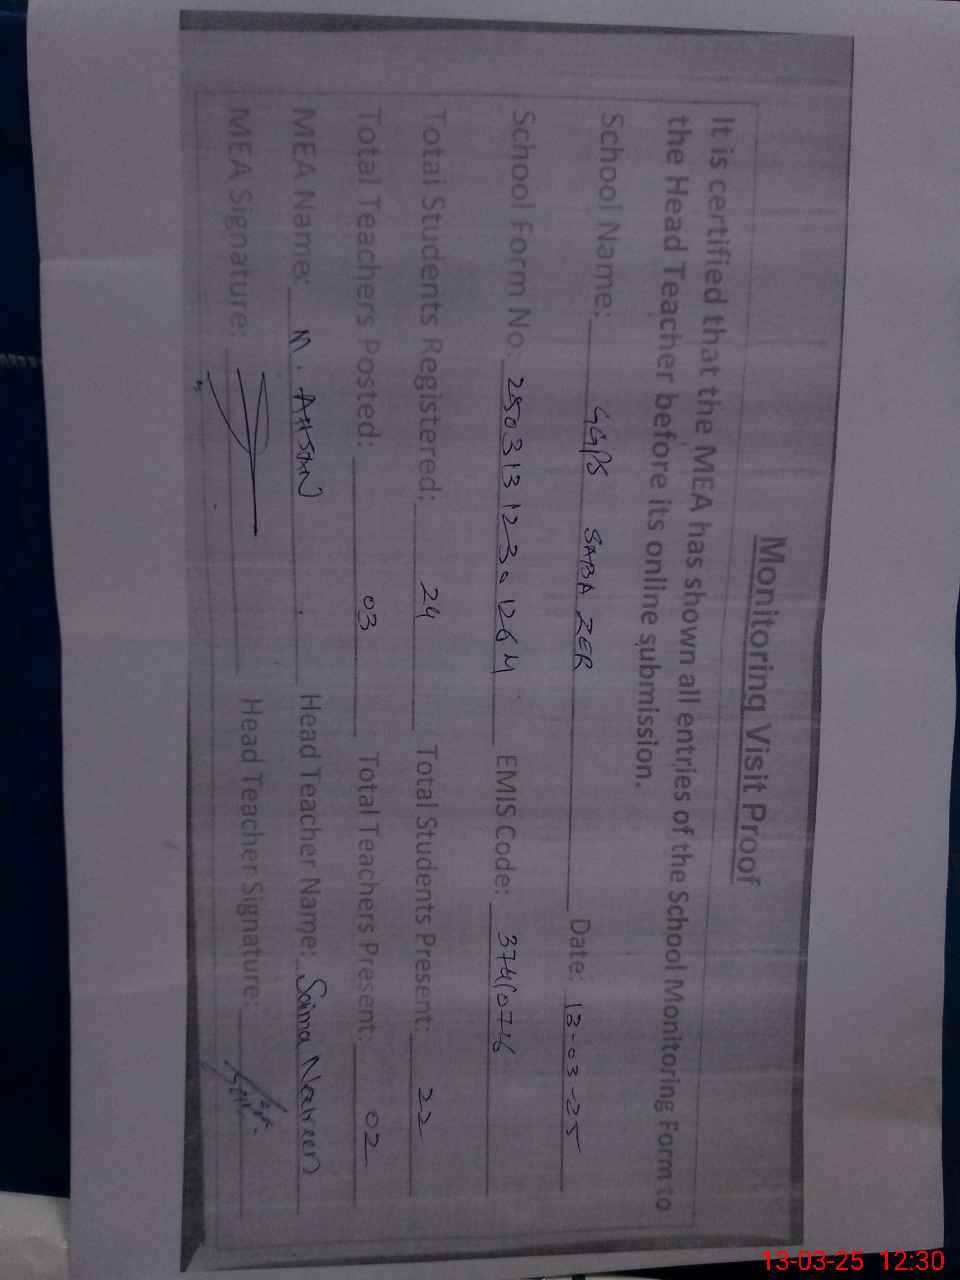 Monitoring Visit Proof
It is certified that the MEA has shown all entries of the School Monitoring Form to
the Head Teacher before its online submission.
School Name: GGPS SABA ZER Date: 13-03-25
School Form No. 2503131230126M EMIS Code: 37410716
Total Students Registered: 24 Total Students Present: 22
Total Teachers Posted: 03 Total Teachers Present: 02
MEA Name: M. AHSAN Head Teacher Name: Saima Nasreen
MEA Signature: Head Teacher Signature:
13-03-25 12:30